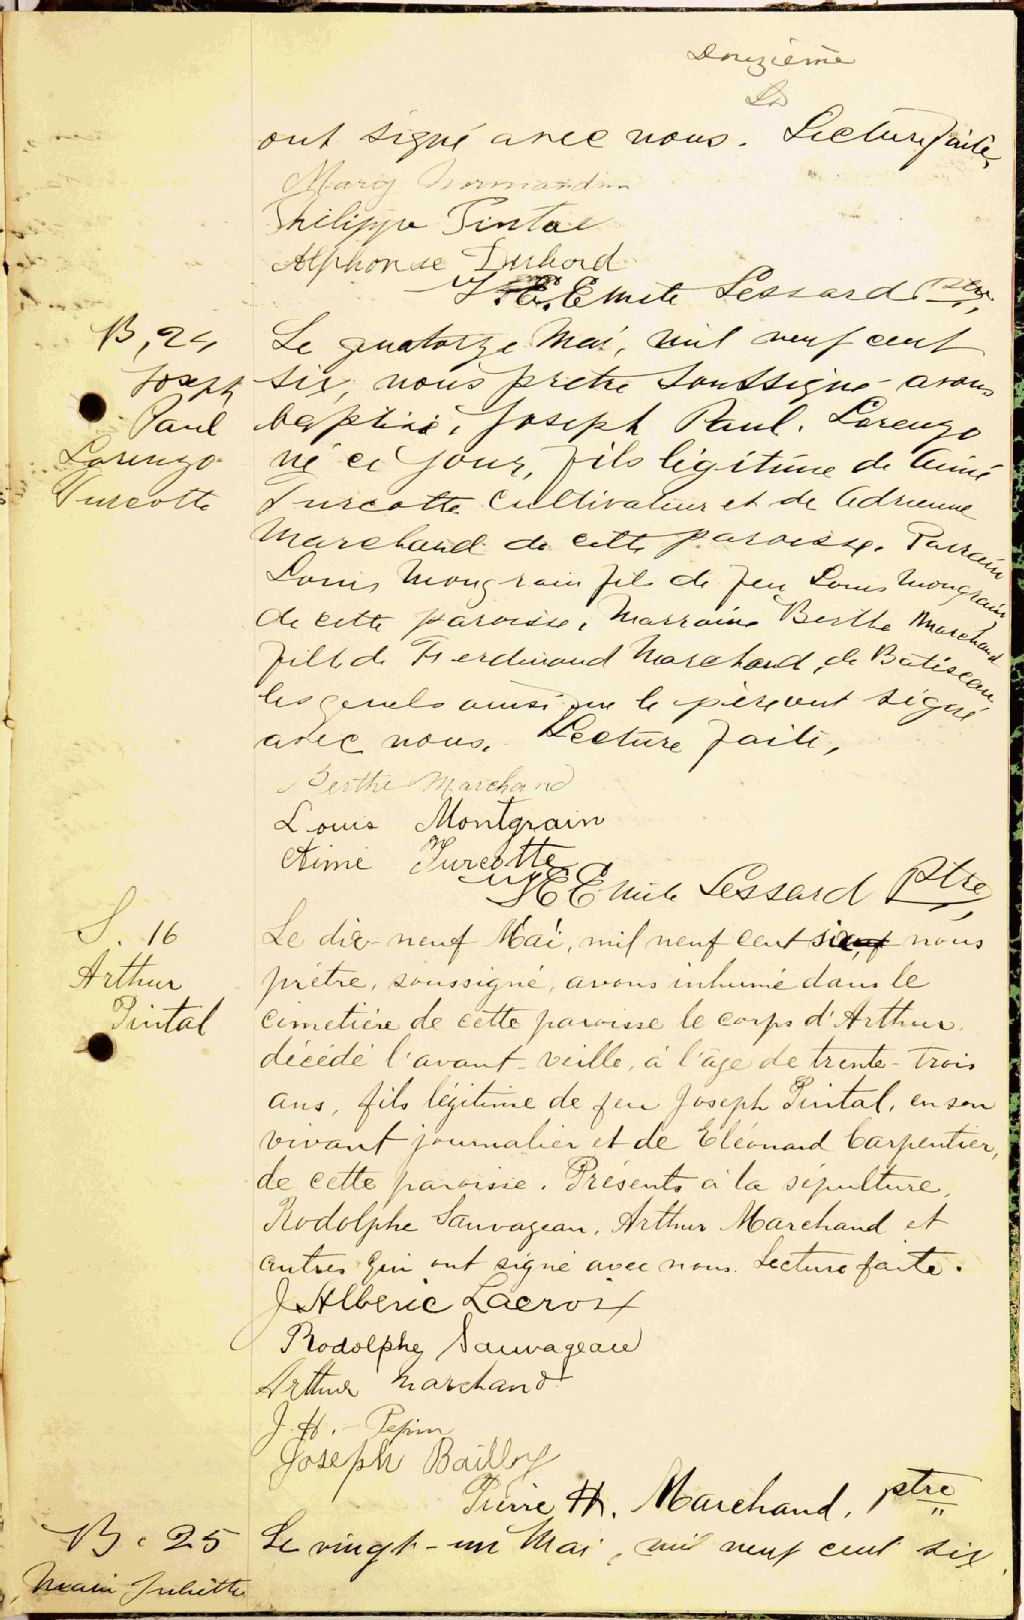 Douzième
ont signé avec nous. Lecture faite,
Mary Normandin
Philippe Pintal
Alphonse Dubord
J. E. Emile Lessard Ptre
B, 24
Joseph
Paul
Lorenzo
Turcotte
Le quatorze Mai, mil neuf cent
six, nous prêtre soussigné avons
baptisé, Joseph Paul. Lorenzo
né ce jour, fils légitime de Aimé
Turcotte cultivateur et de Adrienne
Marchand de cette paroisse. Parrain
Louis Mongrain fils de feu Louis Mongrain
de cette paroisse, Marraine Berthe Marchand
fille de Ferdinand Marchand, de Batiscan
lesquels ainsi que le père ont signé
avec nous. Lecture faite,
Berthe Marchand
Louis Montgrain
Aimé Turcotte
J E Emile Lessard Ptre
S. 16
Arthur
Pintal
Le dix-neuf Mai, mil neuf cent six, nous
prêtre, soussigné, avons inhumé dans le
cimetière de cette paroisse le corps d'Arthur,
décédé l'avant-veille, à l'âge de trente-trois
ans, fils légitime de feu Joseph Pintal, en son
vivant journalier et de Eléonard Carpentier,
de cette paroisse. Présents à la sépulture,
Rodolphe Sauvageau, Arthur Marchand et
autres qui ont signé avec nous. Lecture faite.
J Alberic Lacroix
Rodolphe Sauvageau
Arthur Marchand
J. H. Pepin
Joseph Bailly
Pierre H. Marchand, ptre
B. 25
Juliette
Le vingt-un Mai, mil neuf cent six